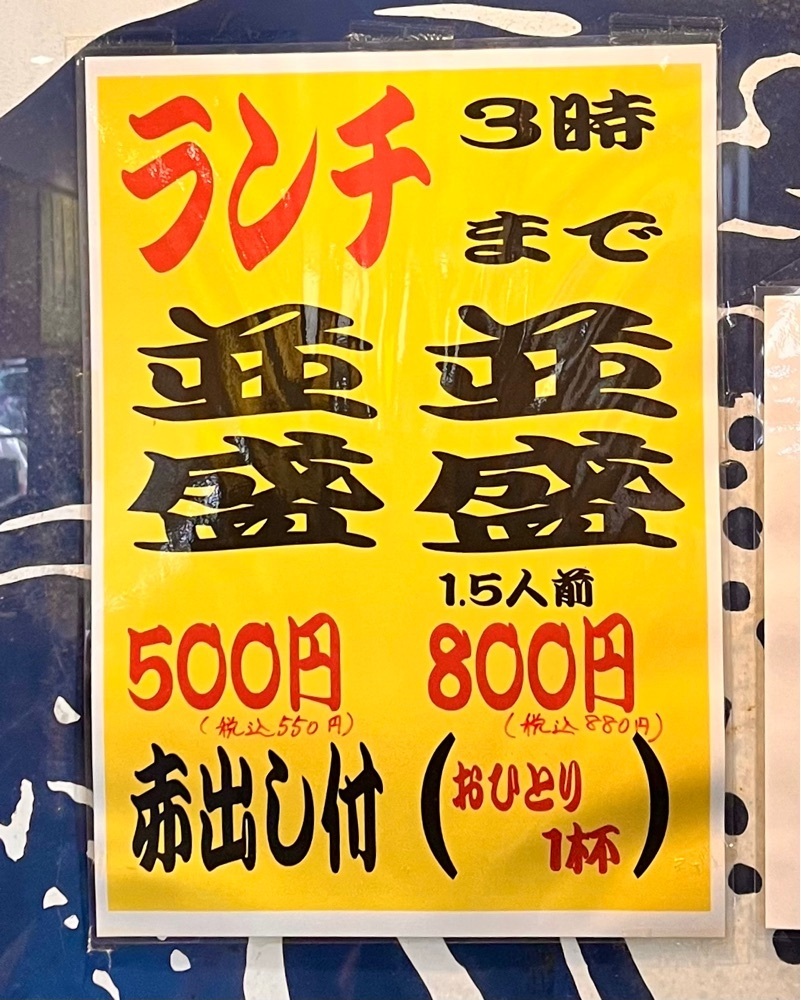 ランチ
3時
まで
並盛
500円
(税込550円)
並盛
1.5人前
800円
(税込880円)
赤出し付
(おひとり
1杯)